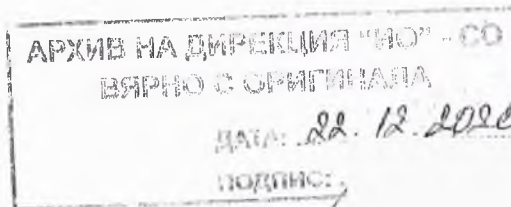 АРХИВ НА ДИРЕКЦИЯ "ИО" - СО
ВЯРНО С ОРИГИНАЛА
ДАТА: 22.12.2020
ПОДПИС: